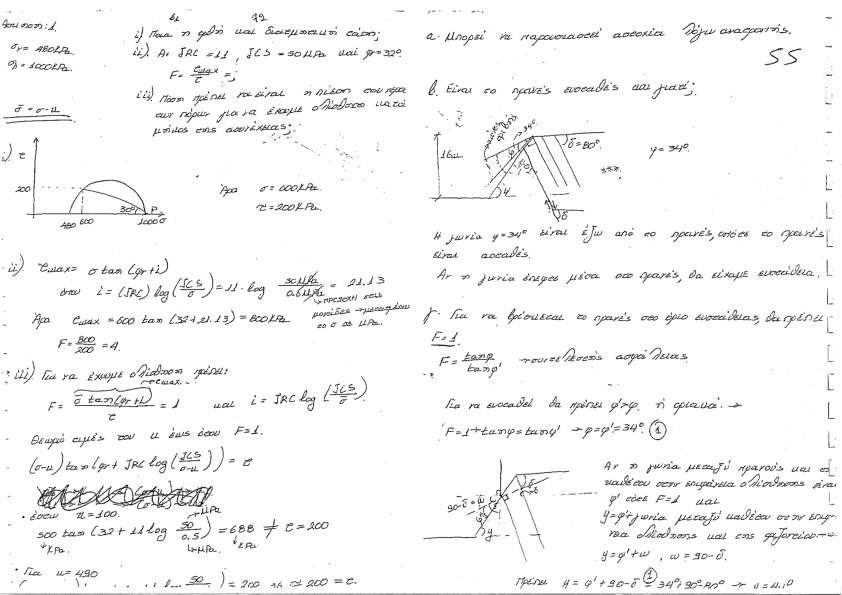 Άσκηση: 1.
σv = 480KPa.
σh = 1000KPa.
σ̄ = σ-u
72
i) Ποια η ορθή και διατμητική τάση;
ii). Αν JRC = 11, JCS = 50MPa και φr = 32°
F = τmax / τ = ;
iii). Πόση πρέπει να είναι η πίεση του νερού
των πόρων για να έχουμε ολίσθηση κατά
μήκος της ασυνέχειας;
i)
τ
200
480 600
30° P
1000 σ
Άρα σ = 600KPa.
τ = 200KPa.
ii) τmax = σ tan(φr+i)
όπου i = (JRC) log(JCS/σ) = 11·log 50MPa/0.6MPa = 21.13
προσοχή στις
μονάδες → μετατρέπω
το σ σε MPa.
Άρα τmax = 600 tan(32+21.13) = 800KPa
F = 800/200 = 4.
iii) Για να έχουμε ολίσθηση πρέπει:
τmax.
F = σ̄ tan(φr+i) / τ = 1 και i = JRC log(JCS/σ̄).
Θεωρώ τιμές του u έως ότου F=1.
(σ-u) tan(φr + JRC log(JCS/σ-u)) = τ
· έστω u = 100.
MPa
500 tan(32+11 log 50/0.5) = 688 ≠ τ = 200
KPa. MPa. KPa.
· Για u = 490
α. Μπορεί να παρουσιαστεί αστοχία λόγω ανατροπής.
SS
β. Είναι το πρανές ευσταθές και γιατί;
16m
34°
δ = 80°
ψ
δ
y = 34°.
Η γωνία y = 34° είναι έξω από το πρανές, οπότε το πρανές
είναι ασταθές.
Αν η γωνία έπεφτε μέσα στο πρανές, θα είχαμε ευστάθεια.
γ. Για να βρίσκεται το πρανές στο όριο ευστάθειας, θα πρέπει
F = 1.
F = tanφ / tanφ' → συντελεστής ασφάλειας
Για να ευσταθεί θα πρέπει φ'>φ. ή οριακά. →
F = 1 → tanφ = tanφ' → φ = φ' = 34°. (1)
90-δ = ω
δ
y
Αν η γωνία μεταξύ πρανούς και
καθέτου στην επιφάνεια ολίσθησης είναι
φ' τότε F=1 και
y = φ' + γωνία μεταξύ καθέτου στην επιφά-
νεια ολίσθησης και της οριζοντίου → ω
y = φ' + ω, ω = 90-δ.
Πρέπει y = φ' + 90-δ